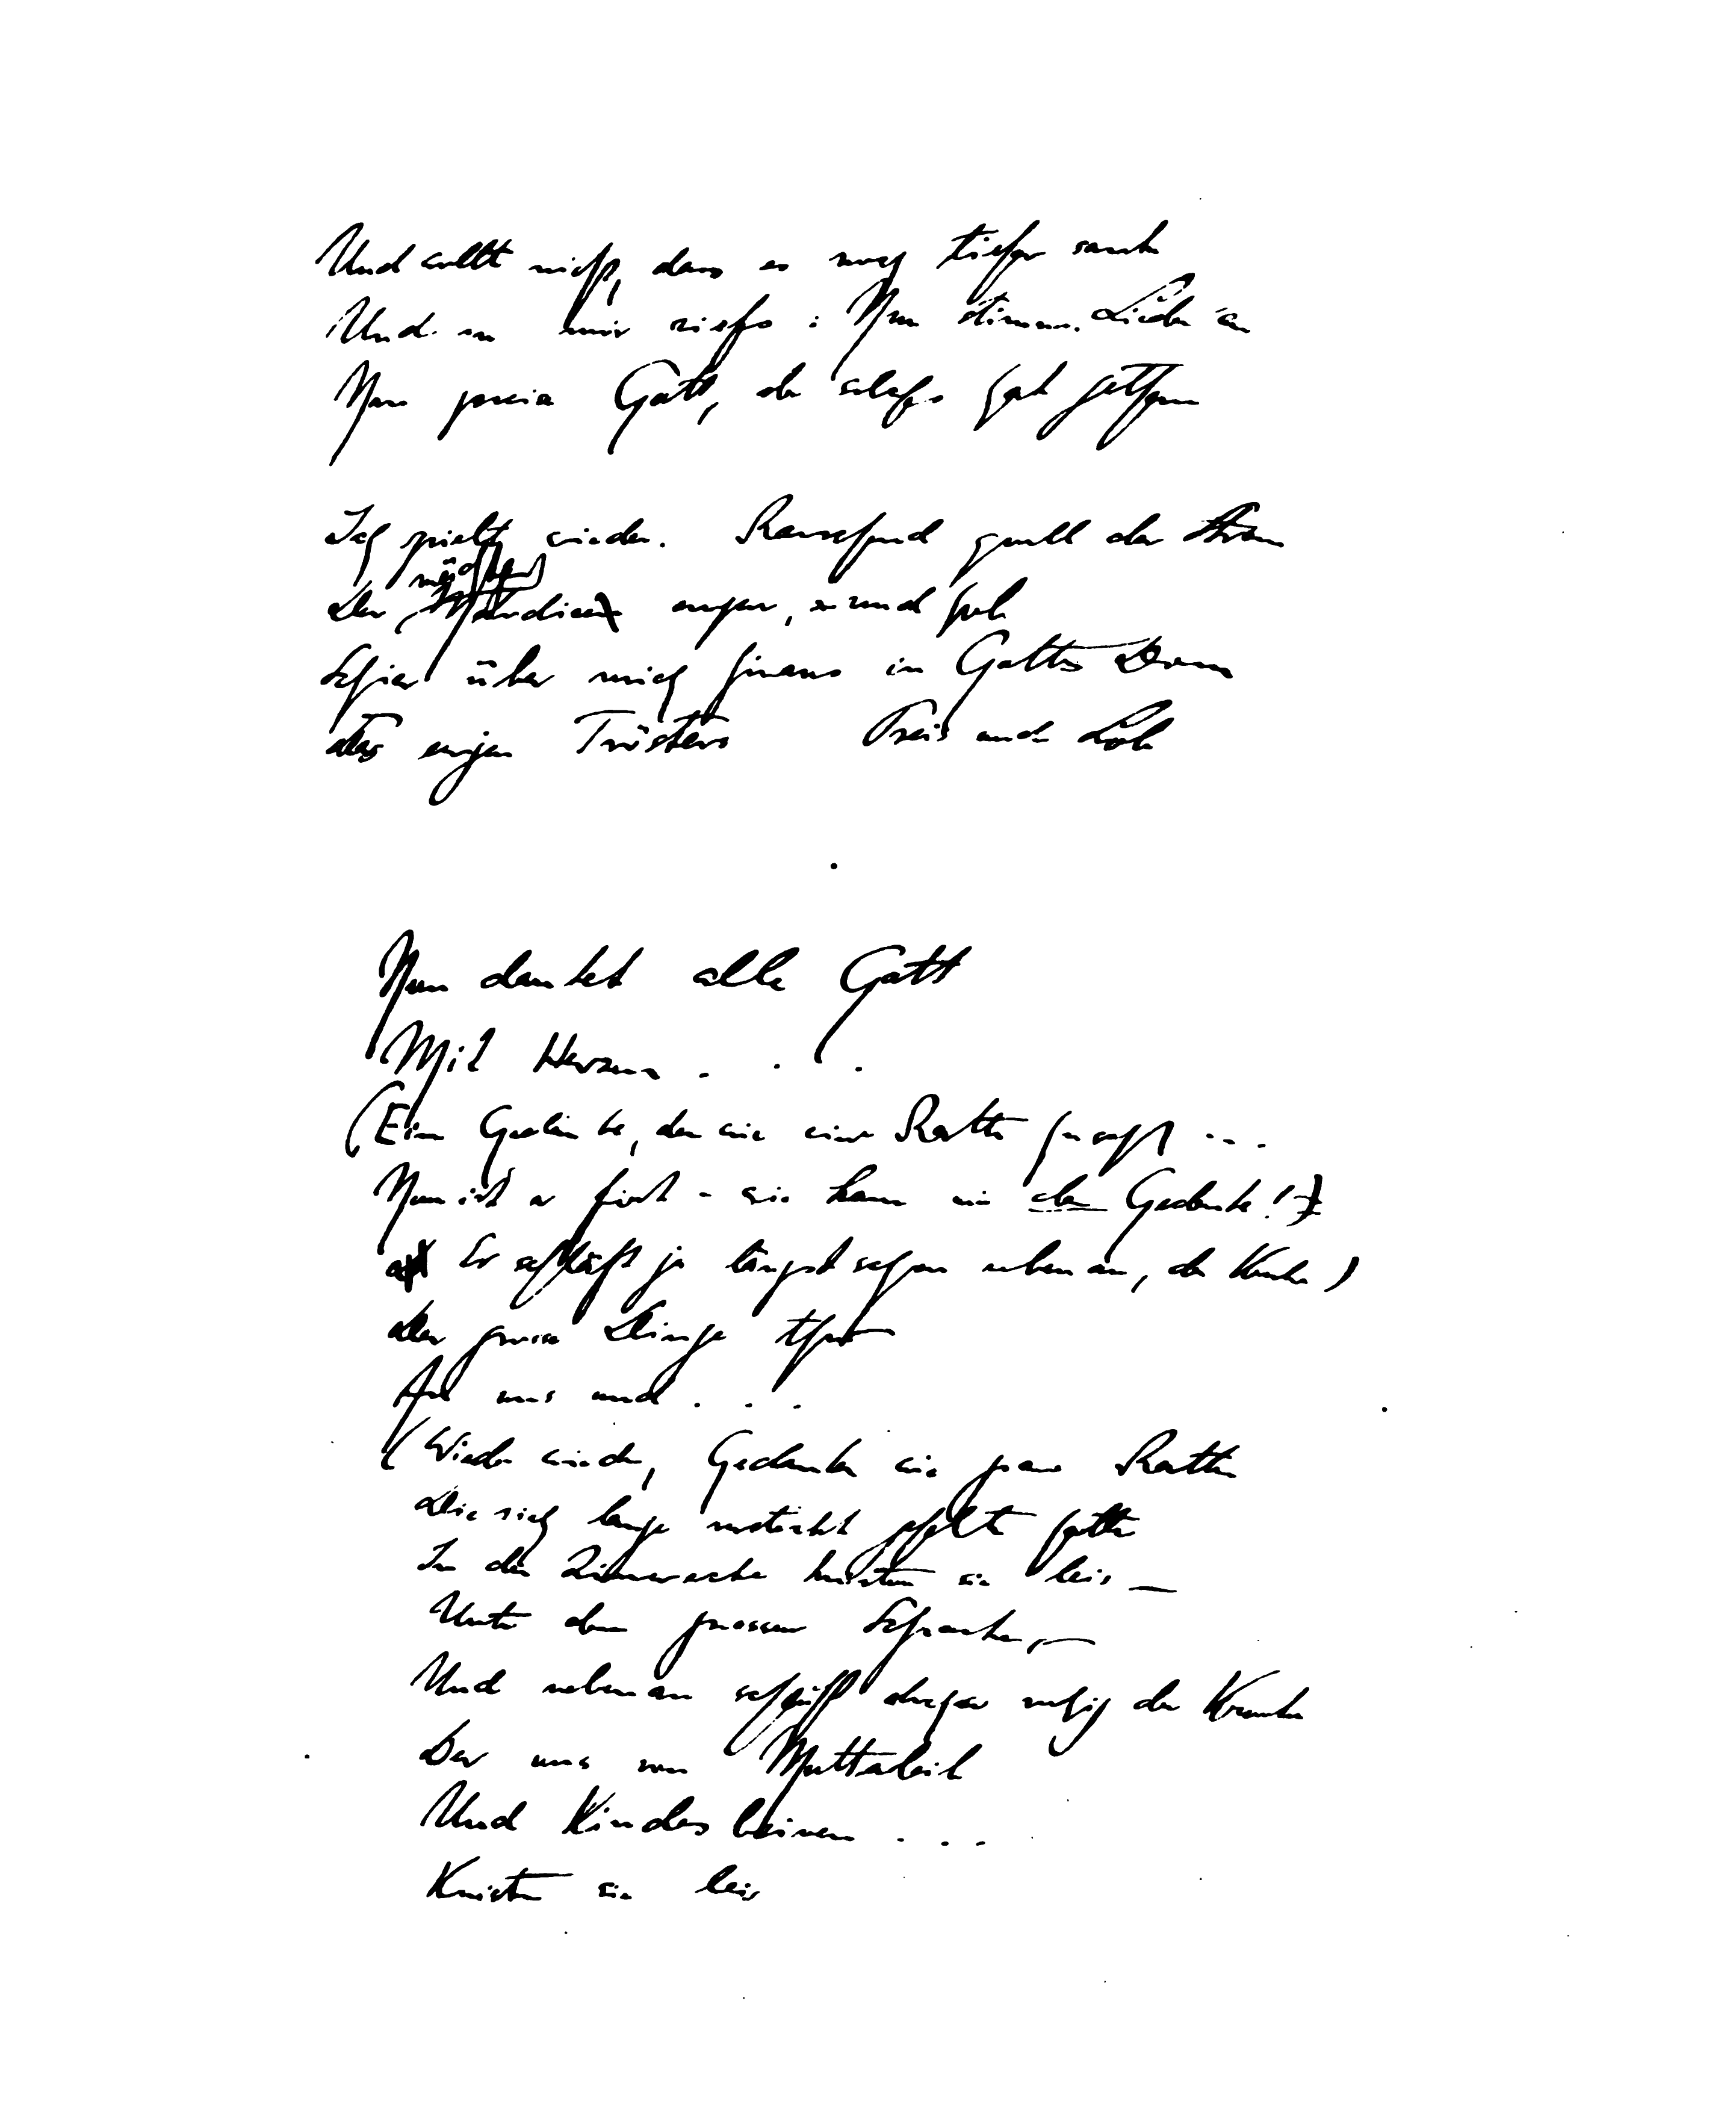 Und wollt nicht, dass es noch tiefer sank
Und in mir riefs: Nun stimm Lieder an
Nun preise Gott, der solches hat gethan
Ich spielte wieder. Rauschend quoll der Strom
Der mächtgen Melodieen empor, und hob
Schier über mich hinaus in Gottes Dom
des ewgen Trösters Preis und Lob
Nun danket alle Gott
Mit Herzen . . .
(Ein Gedanke, der wie eine Ratte huscht ...
Nun ist er fort - wie kam mir der Gedanke!)
Er schläft ja längst schon nebenan, der Kranke)
Der grosse Dinge thut
An uns und . . .
(Wieder wieder, Gedanken wie graue Ratten
Die sich lange versteckt gehalten hatten
In der Zimmerecke knistern sie leis —
Unter dem grossen Schranke, —
Und nebenan schläft ruhig der Kranke
Der uns von Mutterleib
Und Kindesbeinen . . .
Knistern sie leis